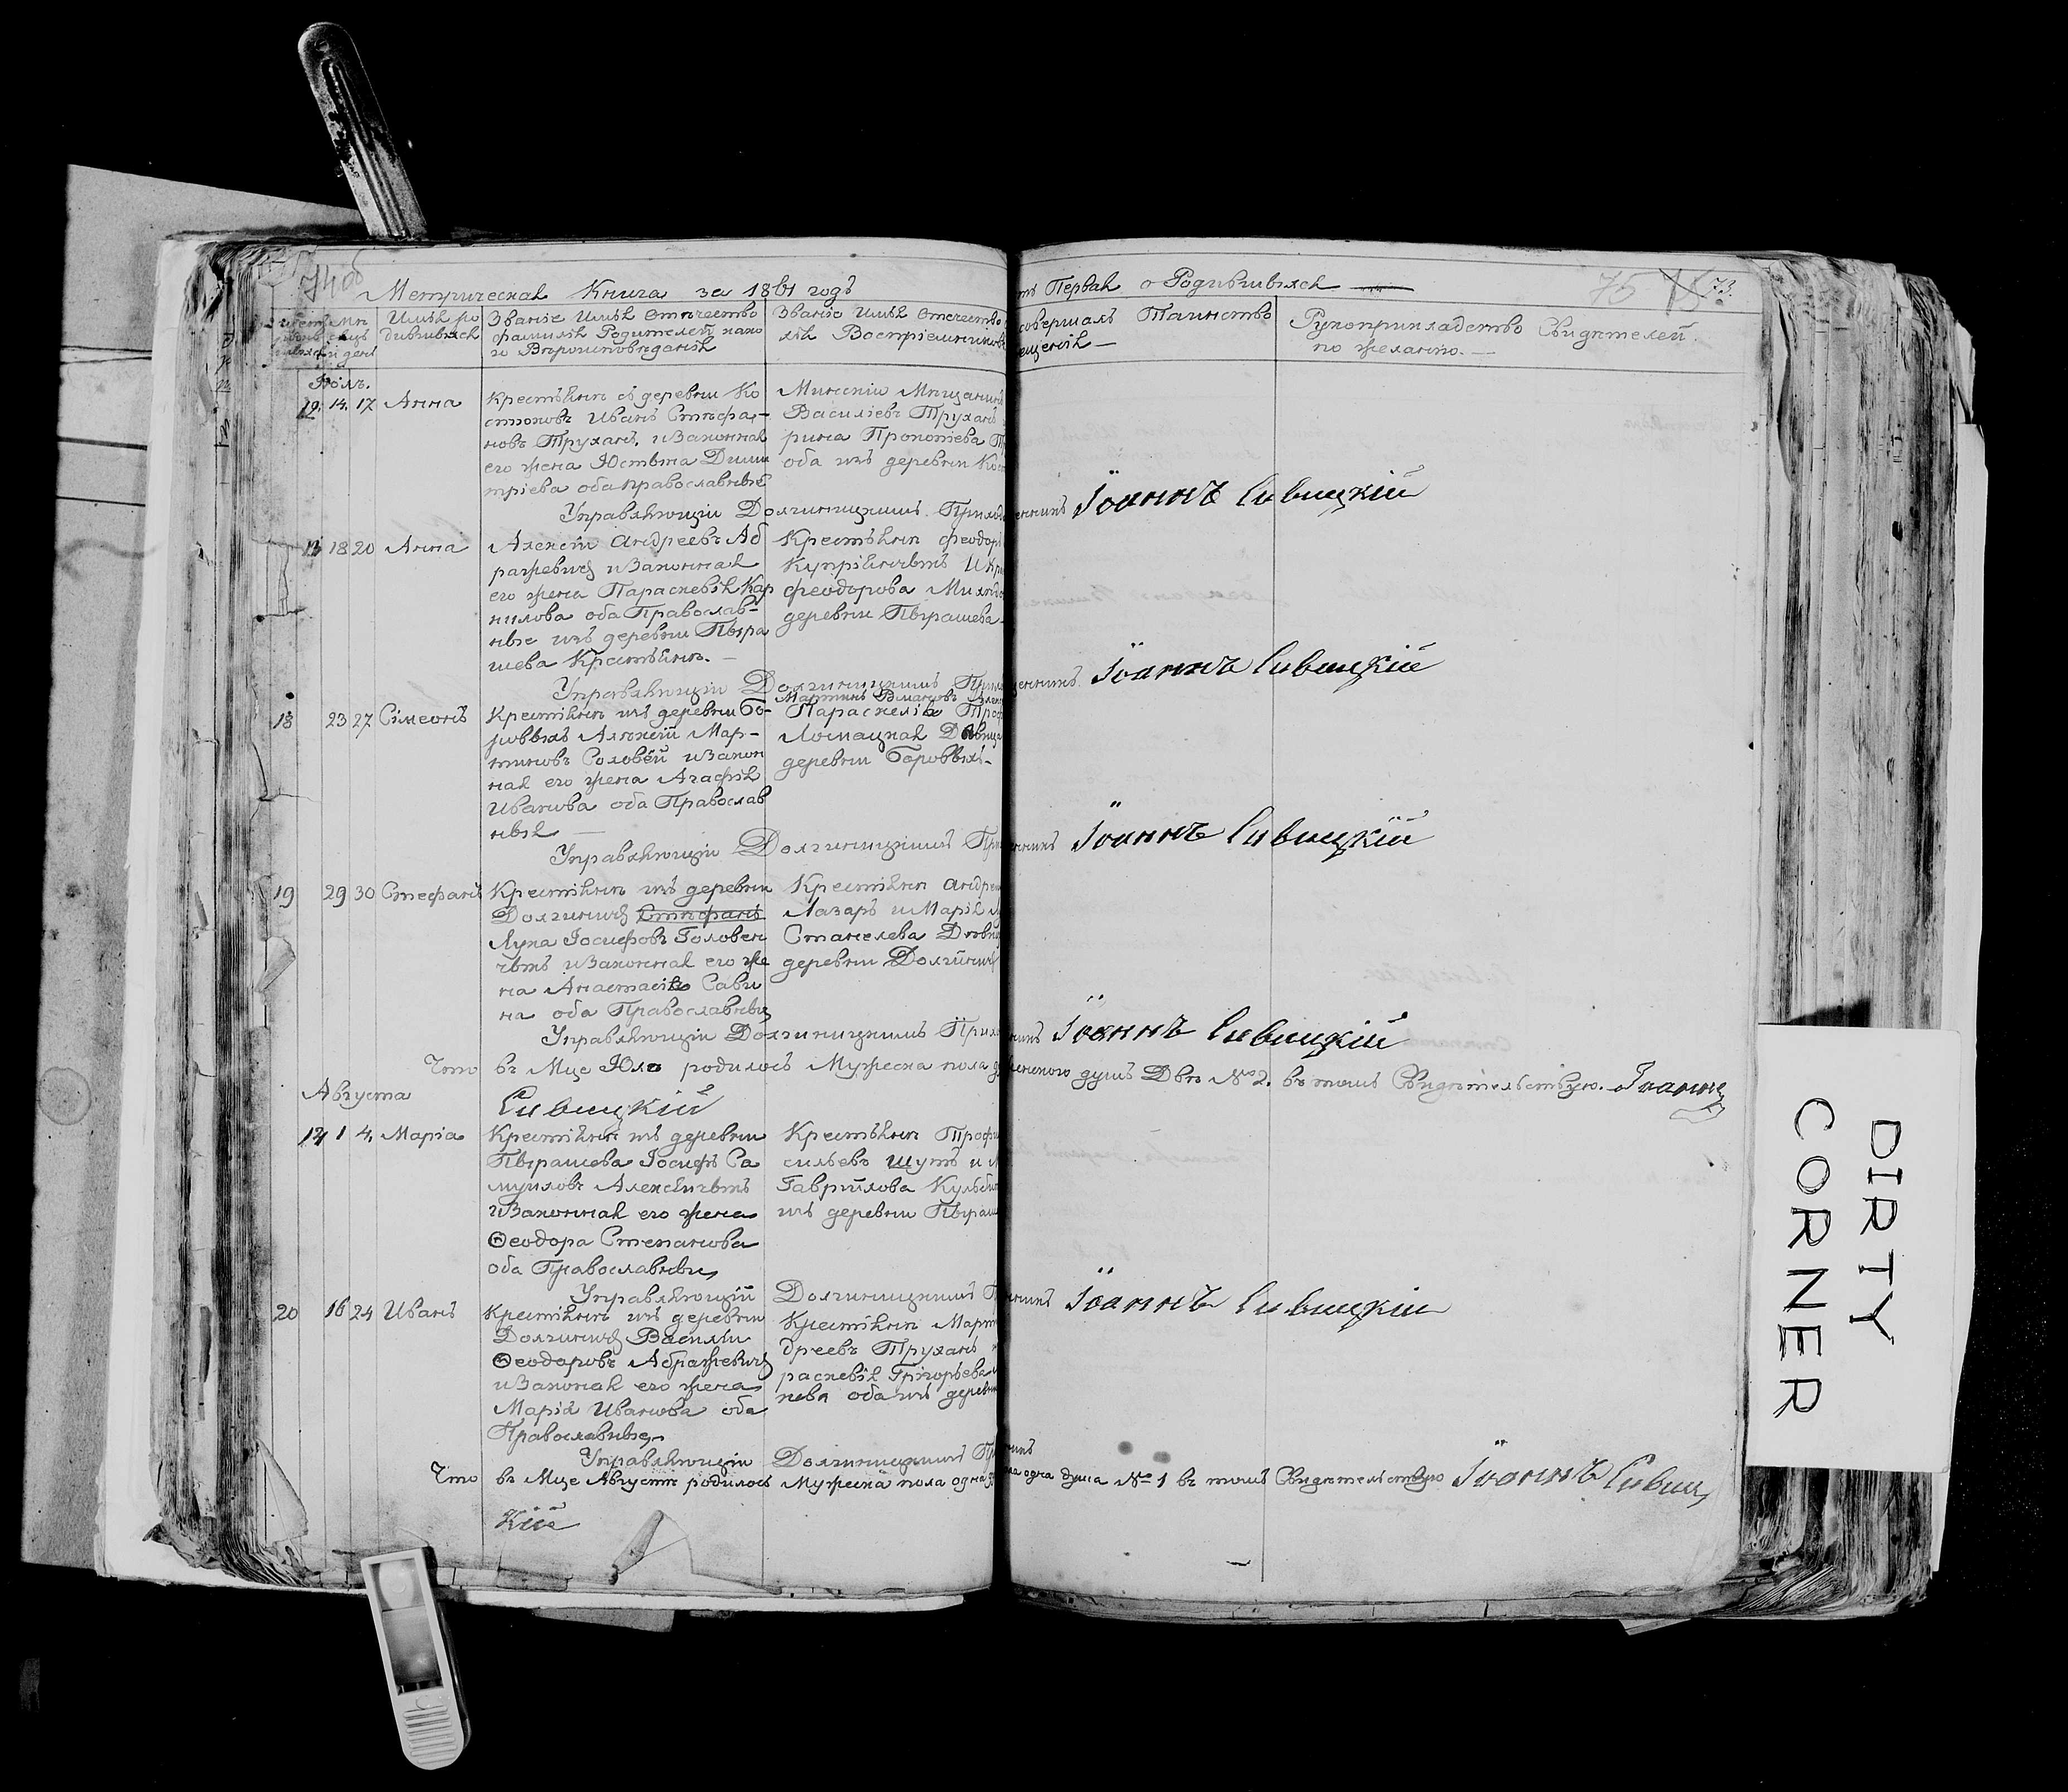 74об
Метрическая Книга за 1861 годъ
ть Первая о Родившихся
75 73.
Имѣ ро
дившихся
Званіе Имѣ Отчество
фамилія Родителей како
го Вѣроисповѣданія
Званіе Имѣ Отечество
ля Воспріемниковъ
совершалъ Таинство
ещенія
Рукоприкладство Свидѣтелей
по желанію.
Іюль.
12. 14. 17 Анна
Крестьянѣ съ деревни Ко
стюковъ Иванъ Стѣфа-
новъ Труханъ, и Законная
его жена Юстына Дими
тріева оба православные
Минскіи Мѣщанинъ
Василіевъ Труханъ
рина Прокопіева Т
оба изъ деревни Кос
Управляющіи Долгиницкимъ Приход
енникъ Іоаннъ Сивицкій
13 18 20 Анна
Алексіи Андреевъ Аб
ражевичъ и Законная
его жена Параскевія Кар
нилова оба Православ-
ные изъ деревни Пыра
шева Крестьянѣ.
Крестьянѣ Феодоръ
Купріянчыкъ И Кри
Феодорова Милядо
деревни Пырашева.
Управляющіи Долгиницкимъ Прих
енникъ Іоаннъ Сивицкій
18 23 27 Сімеонъ
Крестіянѣ изъ деревни Бо-
ровыхъ Алексій Мар-
тиновъ Соловей и Закон
ная его жена Агафія
Иванова оба Православ
ныя
Мартинъ
Параскевія Троф
Ломацкая Дѣвица
деревни Боровыхъ.
Управляющіи Долгиницкимъ При
енникъ Іоаннъ Сивицкій
19 29 30 Стефанъ
Крестіянѣ изъ деревни
Долгиничъ Стѣфанъ
Лука Іосифовъ Головен
чыкъ и Законная его же
на Анастасія Сави
на оба Православныи
Крестіянѣ Андре
Лазаръ и Марія
Станелева Дѣвиц
деревни Долгинич
Управляющіи Долгиницкимъ Прихо
никъ Іоаннъ Сивицкій
Что въ Мце Юлѣ родилось Мужеска пола
женского душъ Двѣ №2. въ томъ Свидѣтельствую. Іоаннъ
Сивицкій
Августа
14 1 4. Маріа
Крестіянѣ изъ деревни
Пырашева Іосифъ Са
муиловъ Алексѣичыкъ
и Законная его жена
Ѳеодора Степанова
оба Православныи
Крестьянѣ Трофи
сильевъ Шутъ и
Гаврилова Кульби
изъ деревни Пыраш
Управляющій Долгиницкимъ П
енникъ Іоаннъ Сивицкій
20 16 24 Иванъ
Крестіянѣ изъ деревни
Долгиничъ Василіи
Ѳеодоровъ Абражевичъ
и Законая его жена
Марія Иванова оба
Православные
Крестіянѣ Март
дреевъ Труханъ
раскевія Григорьева
нева оба изъ деревни
Управляющіи Долгиницкимъ Пр
никъ
Что въ Мце Августѣ родилось Мужеска пола одна
ла одна душа №1 въ томъ Свидѣтельствую Іоаннъ Сивиц
кій
DIRTY
CORNER